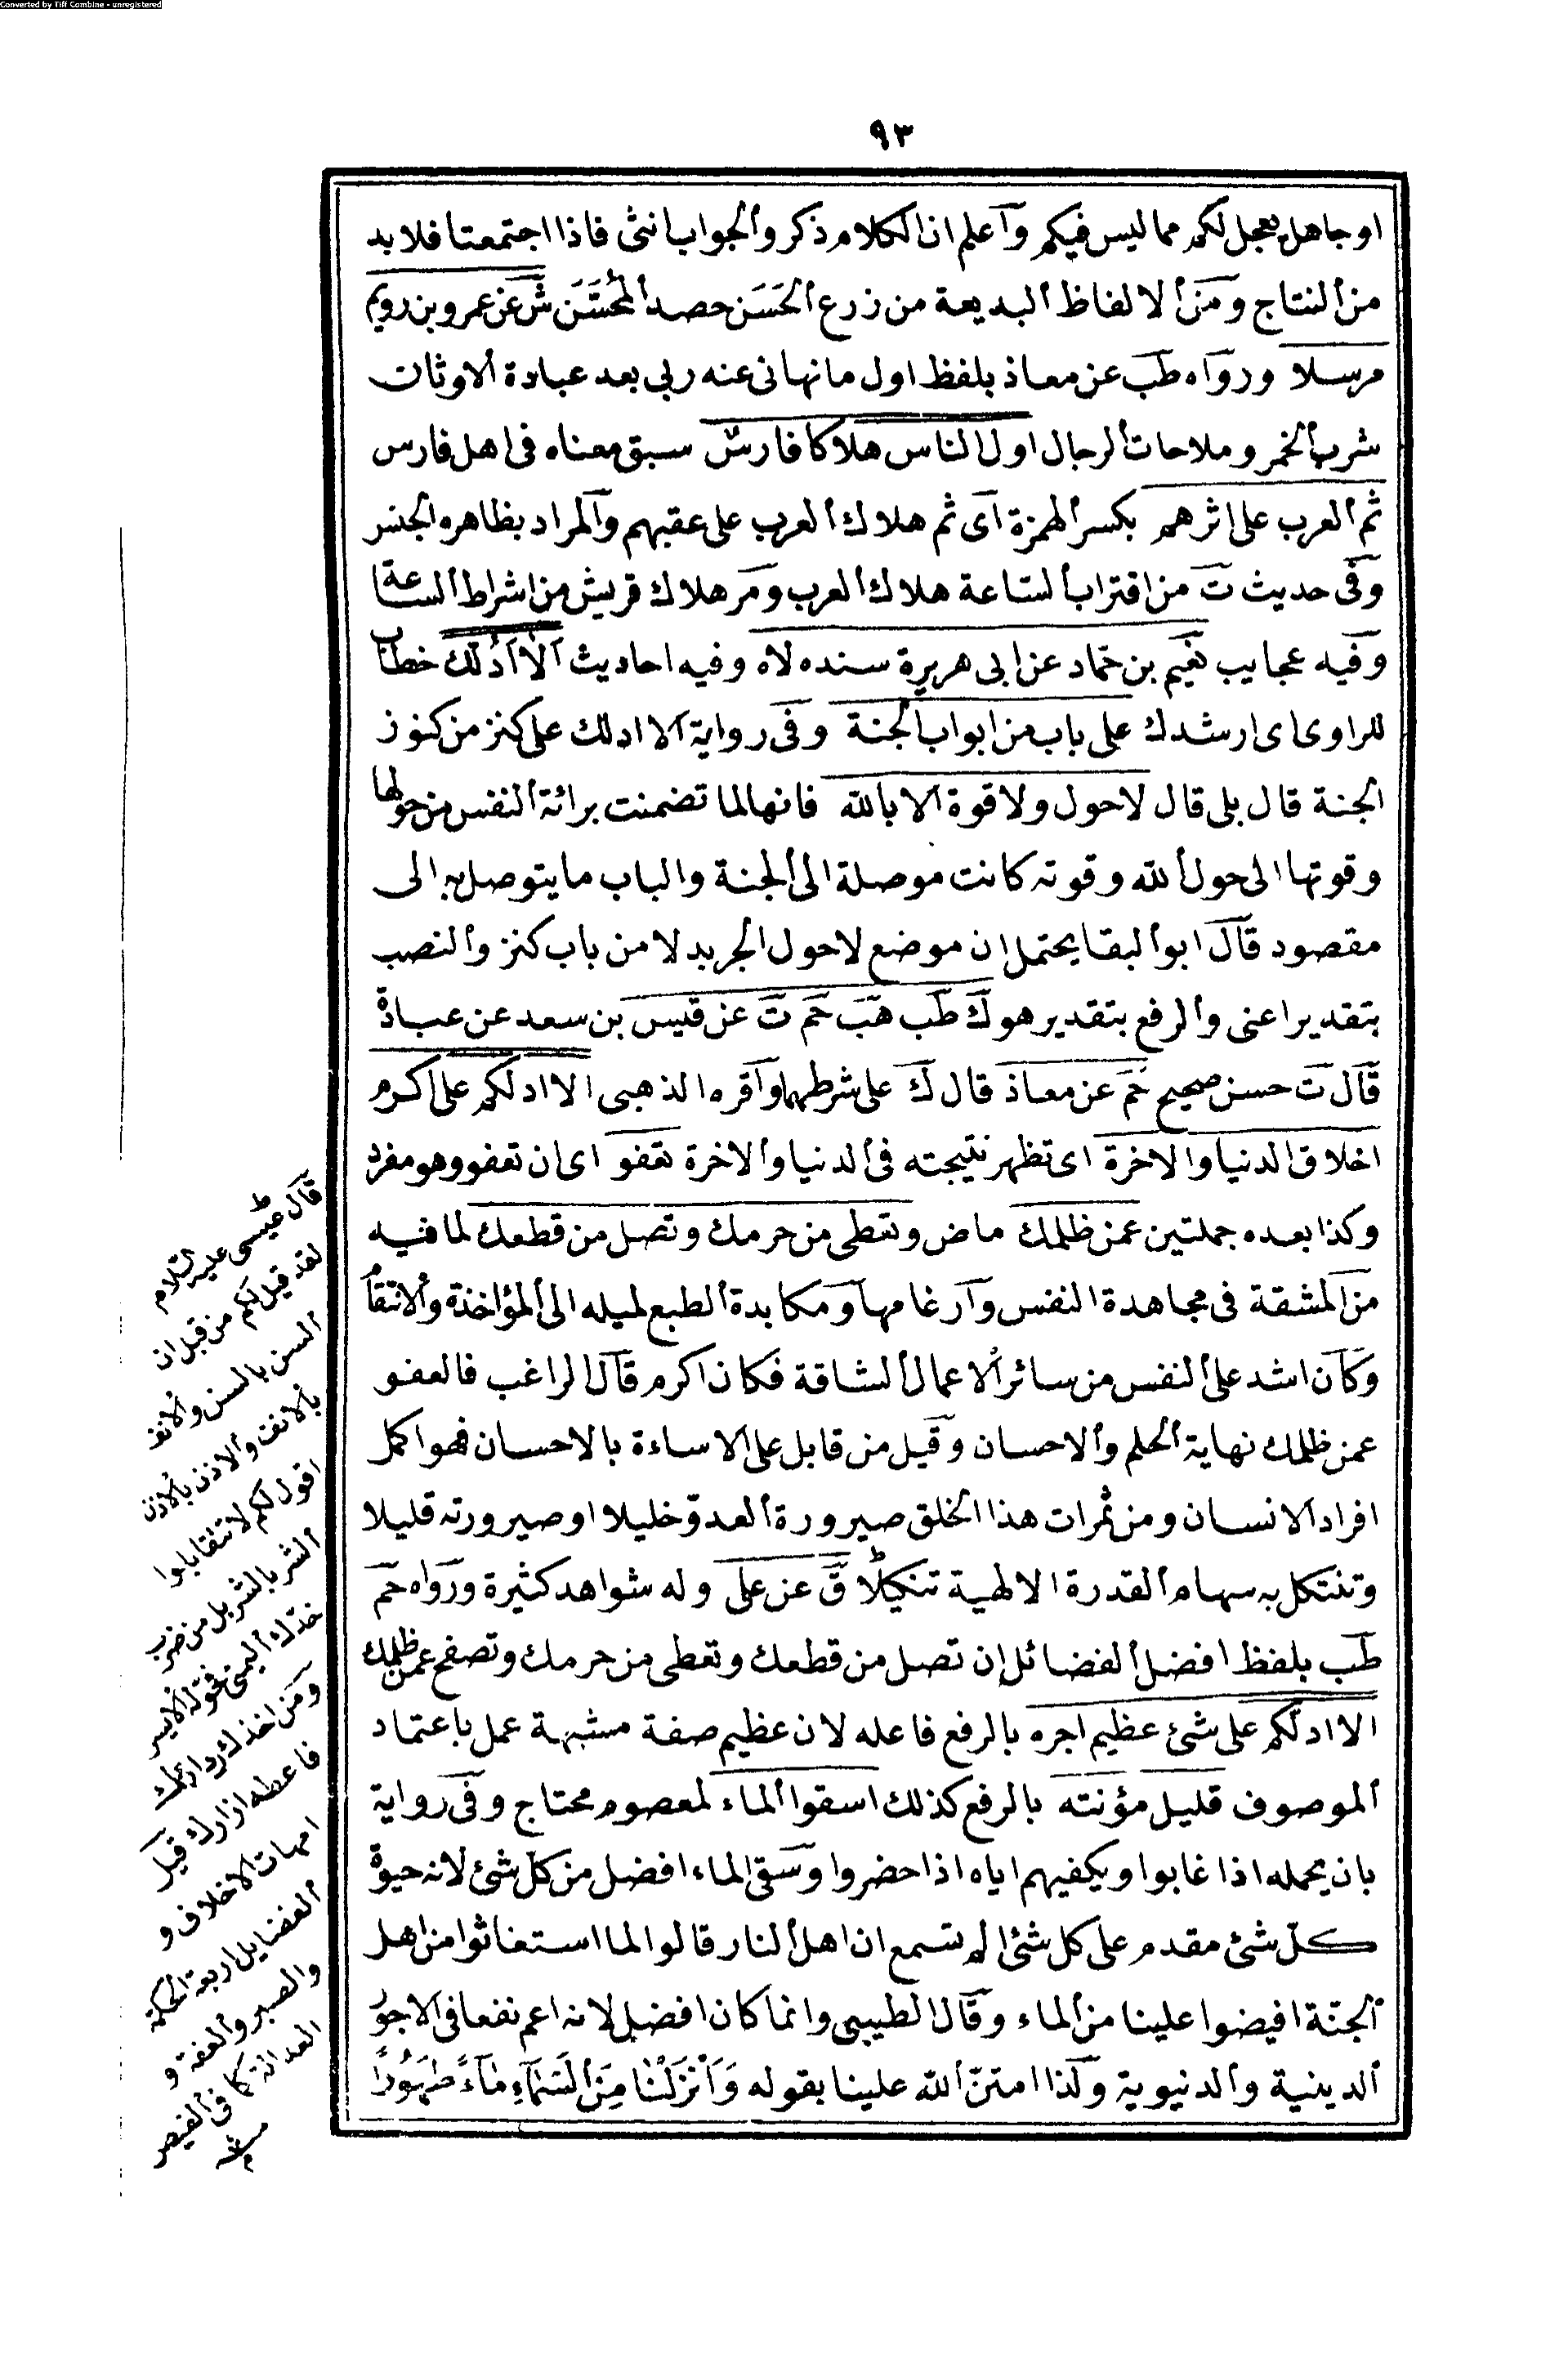 Converted by Tiff Combine - unregistered
٩٣
او جاهل يعجل لكم مما ليس فيكم وآعلم ان الكلام ذكر والجواب انثى فاذا اجتمعتا فلا بد
من النتاج ومن الالفاظ البديعة من زرع الحَسَن حصد المُحْسَّن ش عن عمرو بن رويم
مرسلا ورواه طب عن معاذ بلفظ اول ما نهانى عنه ربى بعد عبادة الاوثان
شرب الخمر وملاحات الرجال اول الناس هلاكا فارس سبق معناه فى اهل فارس
ثم العرب على اثرهم بكسر الهمزة اى ثم هلاك العرب على عقبهم والمراد بظاهره الجنس
وفى حديث ت من اقتراب الساعة هلاك العرب ومر هلاك قريش من اشراط الساعة
وفيه عجايب نعيم بن حماد عن ابى هريرة سنده لاه وفيه احاديث ألا أدُلّك خطاب
للراوى اى ارشدك على باب من ابواب الجنة وفى رواية الا ادلك على كنز من كنوز
الجنة قال بلى قال لا حول ولا قوة الا بالله فانها لما تضمنت برائة النفس من حولها
وقوتها الى حول الله وقوته كانت موصلة الى الجنة والباب ما يتوصل به الى
مقصود قال ابو البقا يحتمل ان موضع لا حول الجر بدلا من باب كنز والنصب
بتقدير اعنى والرفع بتقدير هو ك طب هب حم ت عن قيس بن سعد عن عبادة
قال ت حسن صحيح حم عن معاذ قال ك على شرطهما واقره الذهبى الا ادلكم على اكرم
اخلاق الدنيا والاخرة اى تظهر نتيجته فى الدنيا والاخرة تعفو اى ان تعفو وهو مفرد
وكذا بعده جملتين عمن ظلمك ماض وتعطى من حرمك وتصل من قطعك لما فيه
من المشقة فى مجاهدة النفس وارغامها ومكابدة الطبع لميله الى المؤاخذة والانتقام
وكان اشد على النفس من سائر الاعمال الشاقة فكان اكرم قال الراغب فالعفو
عمن ظلمك نهاية الحلم والاحسان وقيل من قابل على الاساءة بالاحسان فهو اكمل
افراد الانسان ومن ثمرات هذا الخلق صيرورة العدو خليلا او صيرورته قليلا
وتنتكل به سهام القدرة الالهية تنكيلا ق عن على وله شواهد كثيرة ورواه حم
طب بلفظ افضل الفضائل ان تصل من قطعك وتعطى من حرمك وتصفح عمن ظلمك
الا ادلّكم على شئ عظيم اجره بالرفع فاعله لان عظيم صفة مشبهة عمل باعتماد
الموصوف قليل مؤنته بالرفع كذلك اسقوا الماء لمعصوم محتاج وفى رواية
بان يحمله اذا غابوا ويكفيهم اياه اذا حضروا وسقى الماء افضل من كل شئ لانه حيوة
كلّ شئ مقدم على كل شئ الم تسمع ان اهل النار قالوا لما استغاثوا من اهل
الجنّة افيضوا علينا من الماء وقال الطيبى وانما كان افضل لانه اعم نفعا فى الاجور
الدينية والدنيوية ولذا امتنّ الله علينا بقوله وَاَنْزَلْنَا مِنَ السَّمَآءِ مَآءً طَهُورًا
قال عيسى عليه السلام
لقد قيل لكم من قبل ان
السن بالسن والانف
بالانف والاذن بالاذن
اقول لكم لا تقابلوا
الشر بالشر بل من ضرب
خدّك اليمنى
ومن اخذ
فاعطه ازارك قيل
امهات الاخلاق و
الفضايل اربعة الحكمة
والصبر والعفة و
العدالة كما فى الفيض